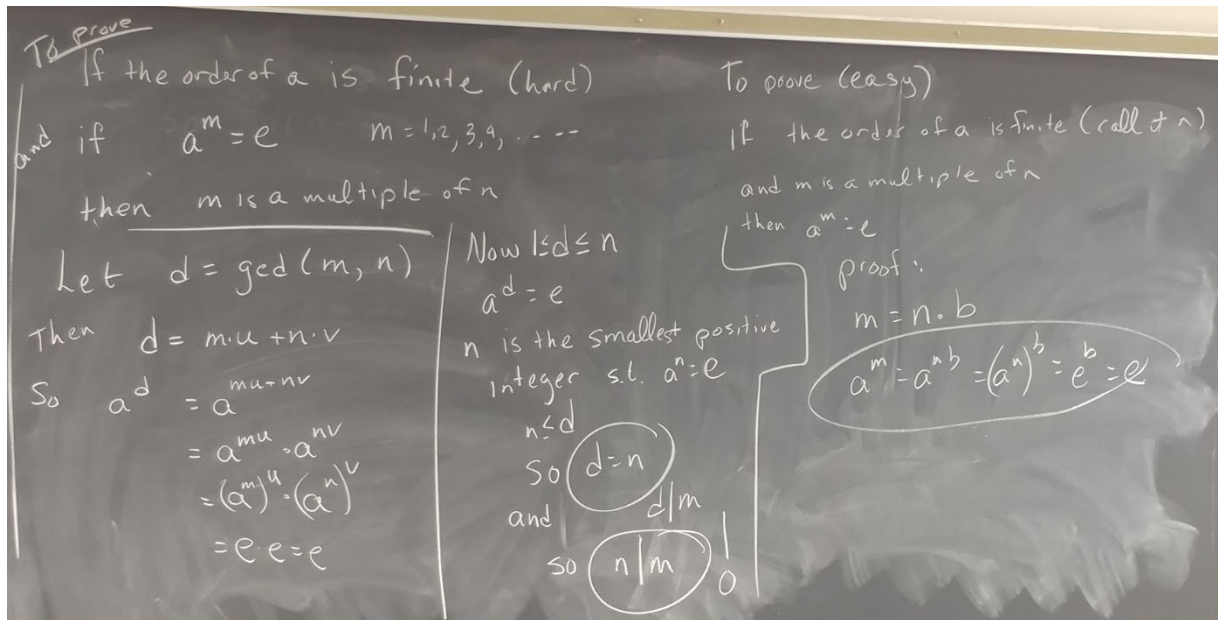 To prove
If the order of a is finite (hard)
and if a^m = e m = 1, 2, 3, 4, . . . .
then m is a multiple of n
Let d = gcd (m, n)
Then d = m·u + n·v
So a^d = a^{mu+nv}
= a^{mu} · a^{nv}
= (a^m)^u · (a^n)^v
= e · e = e
Now 1 ≤ d ≤ n
a^d = e
n is the smallest positive
integer s.t. a^n = e
n ≤ d
So d = n
and d | m
so n | m !
To prove (easy)
If the order of a is finite (call it n)
and m is a multiple of n
then a^m = e
proof :
m = n · b
a^m = a^{nb} = (a^n)^b = e^b = e